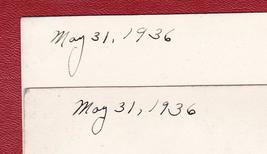 May 31, 1936
May 31, 1936